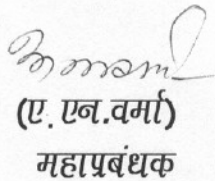 (ए. एन.वर्मा)
महाप्रबंधक